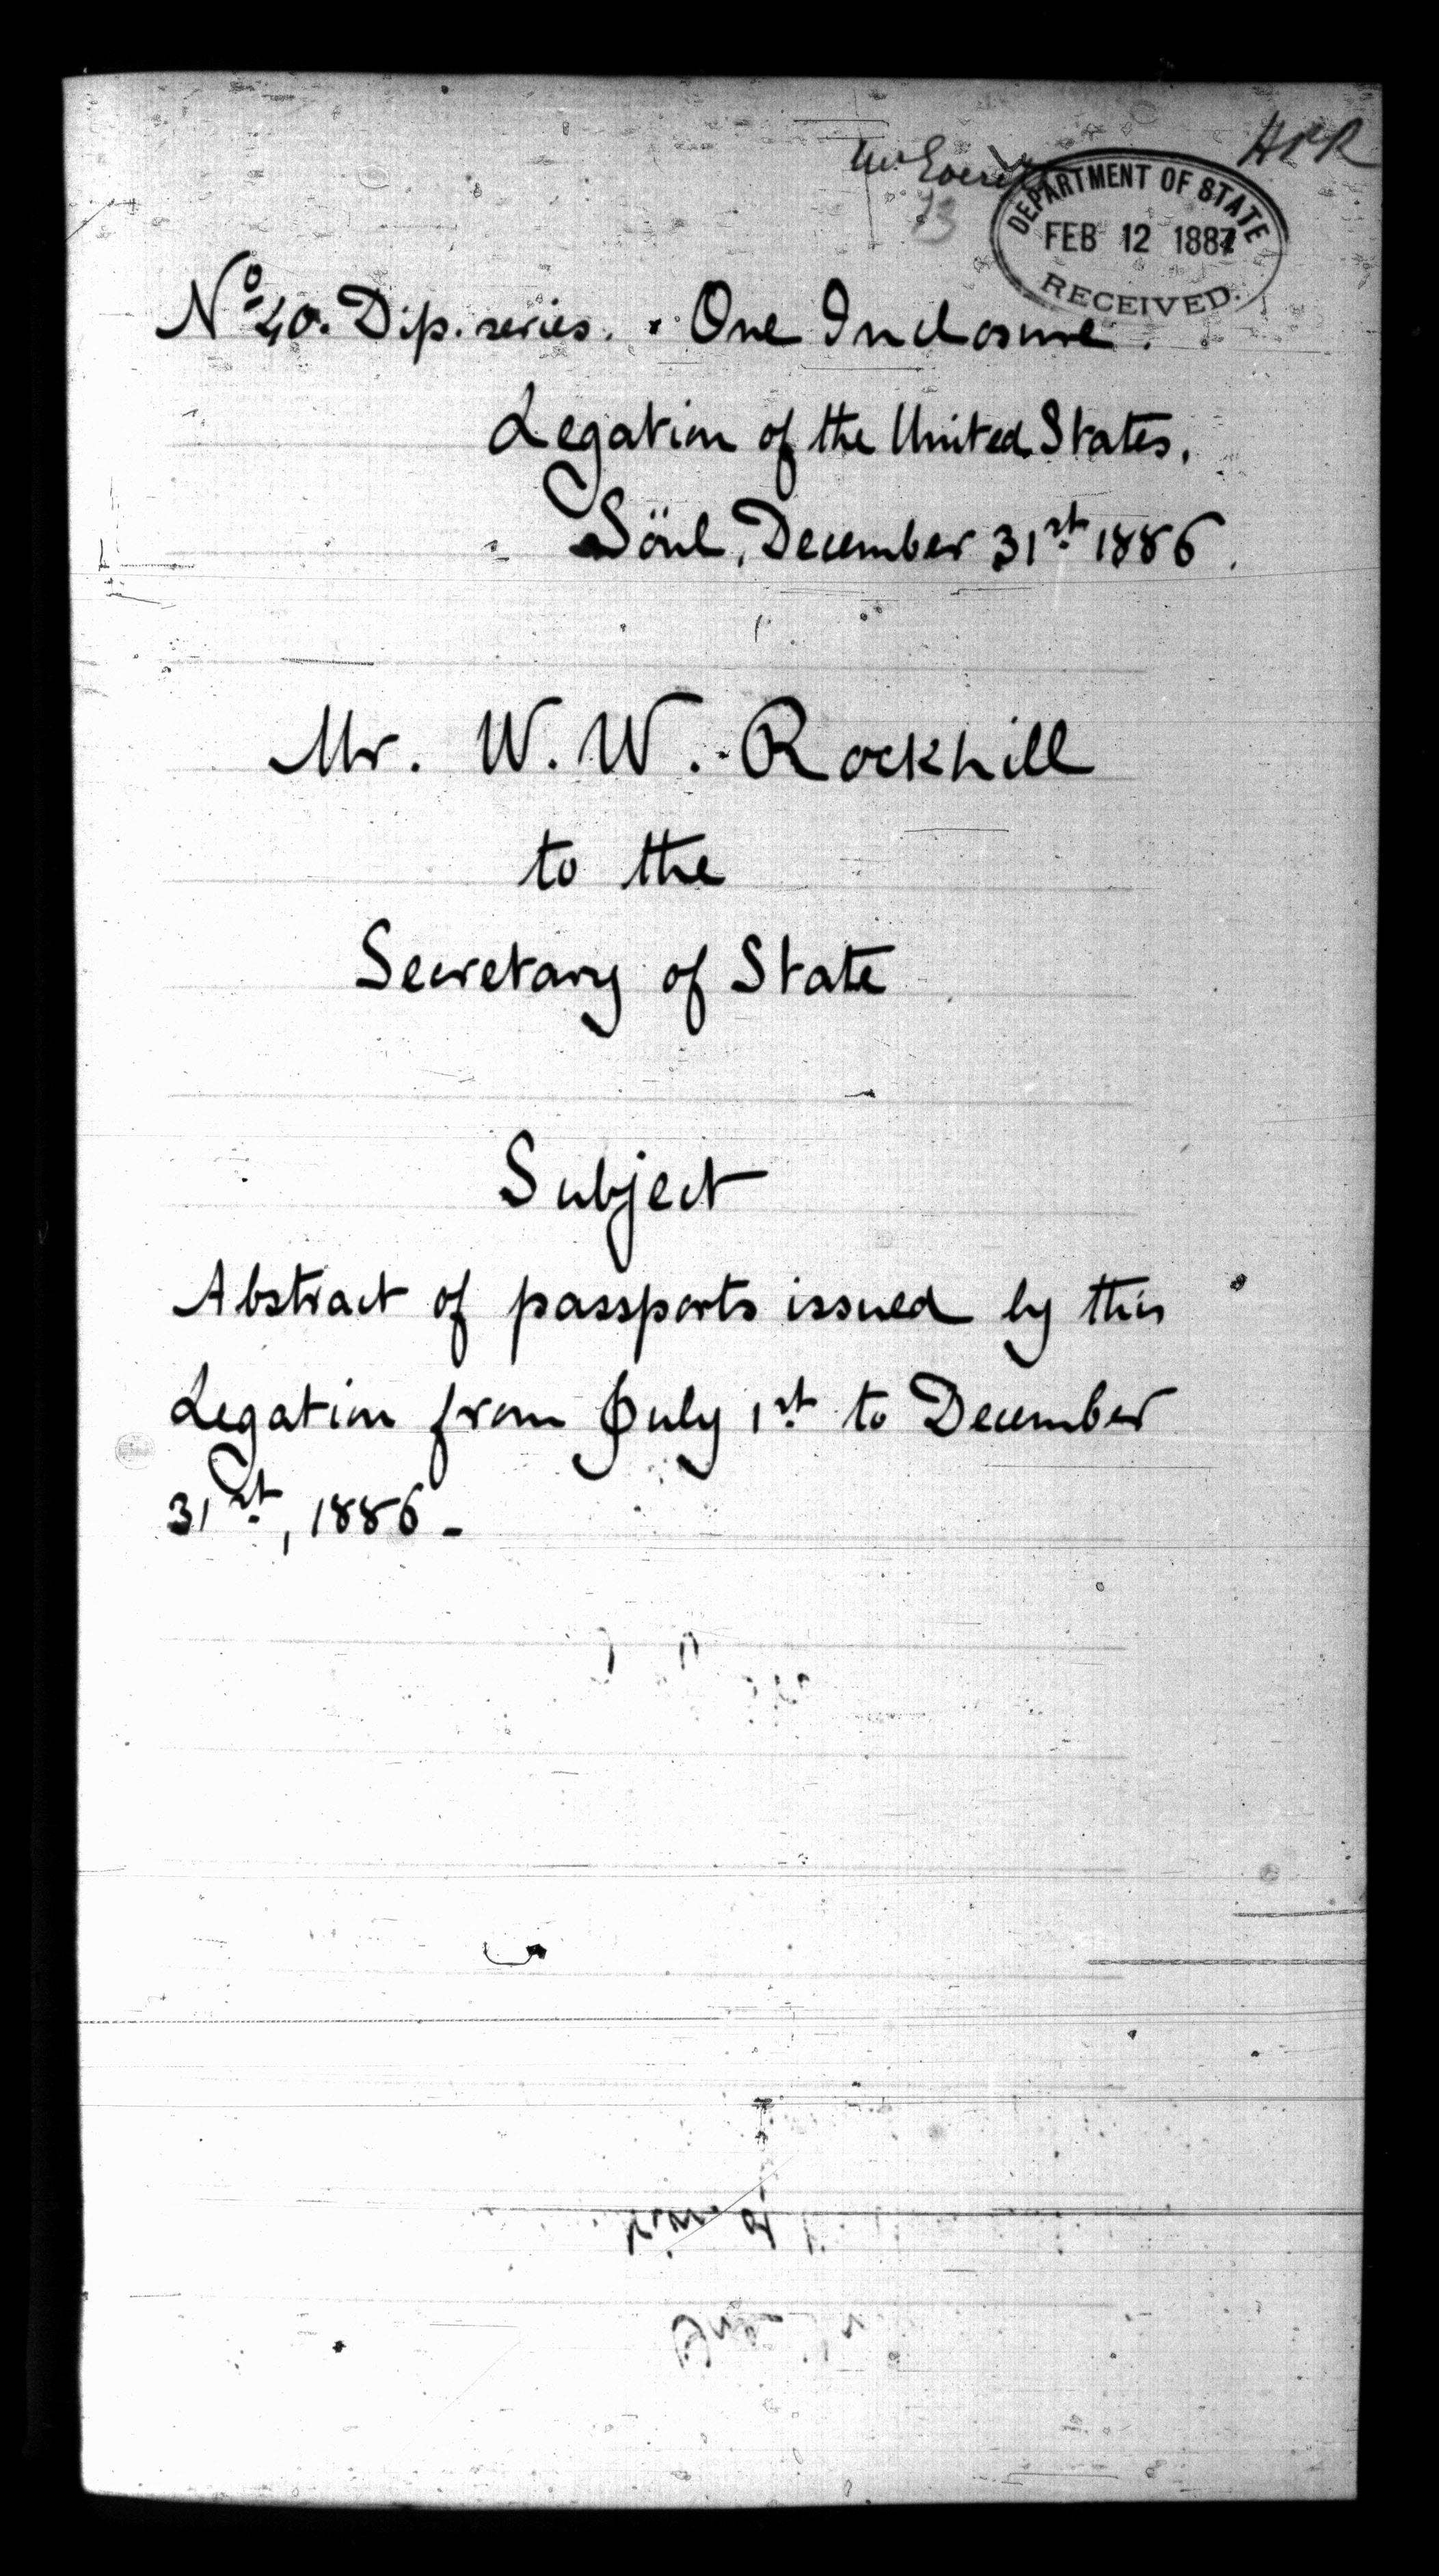 HPR
DEPARTMENT OF STATE
FEB 12 1887
RECEIVED.
Nº 40. Dip. series. One Inclosure.
Legation of the United States,
Söul, December 31st 1886.
Mr. W. W. Rockhill
to the
Secretary of State
Subject
Abstract of passports issued by this
Legation from July 1st to December
31st, 1886 -